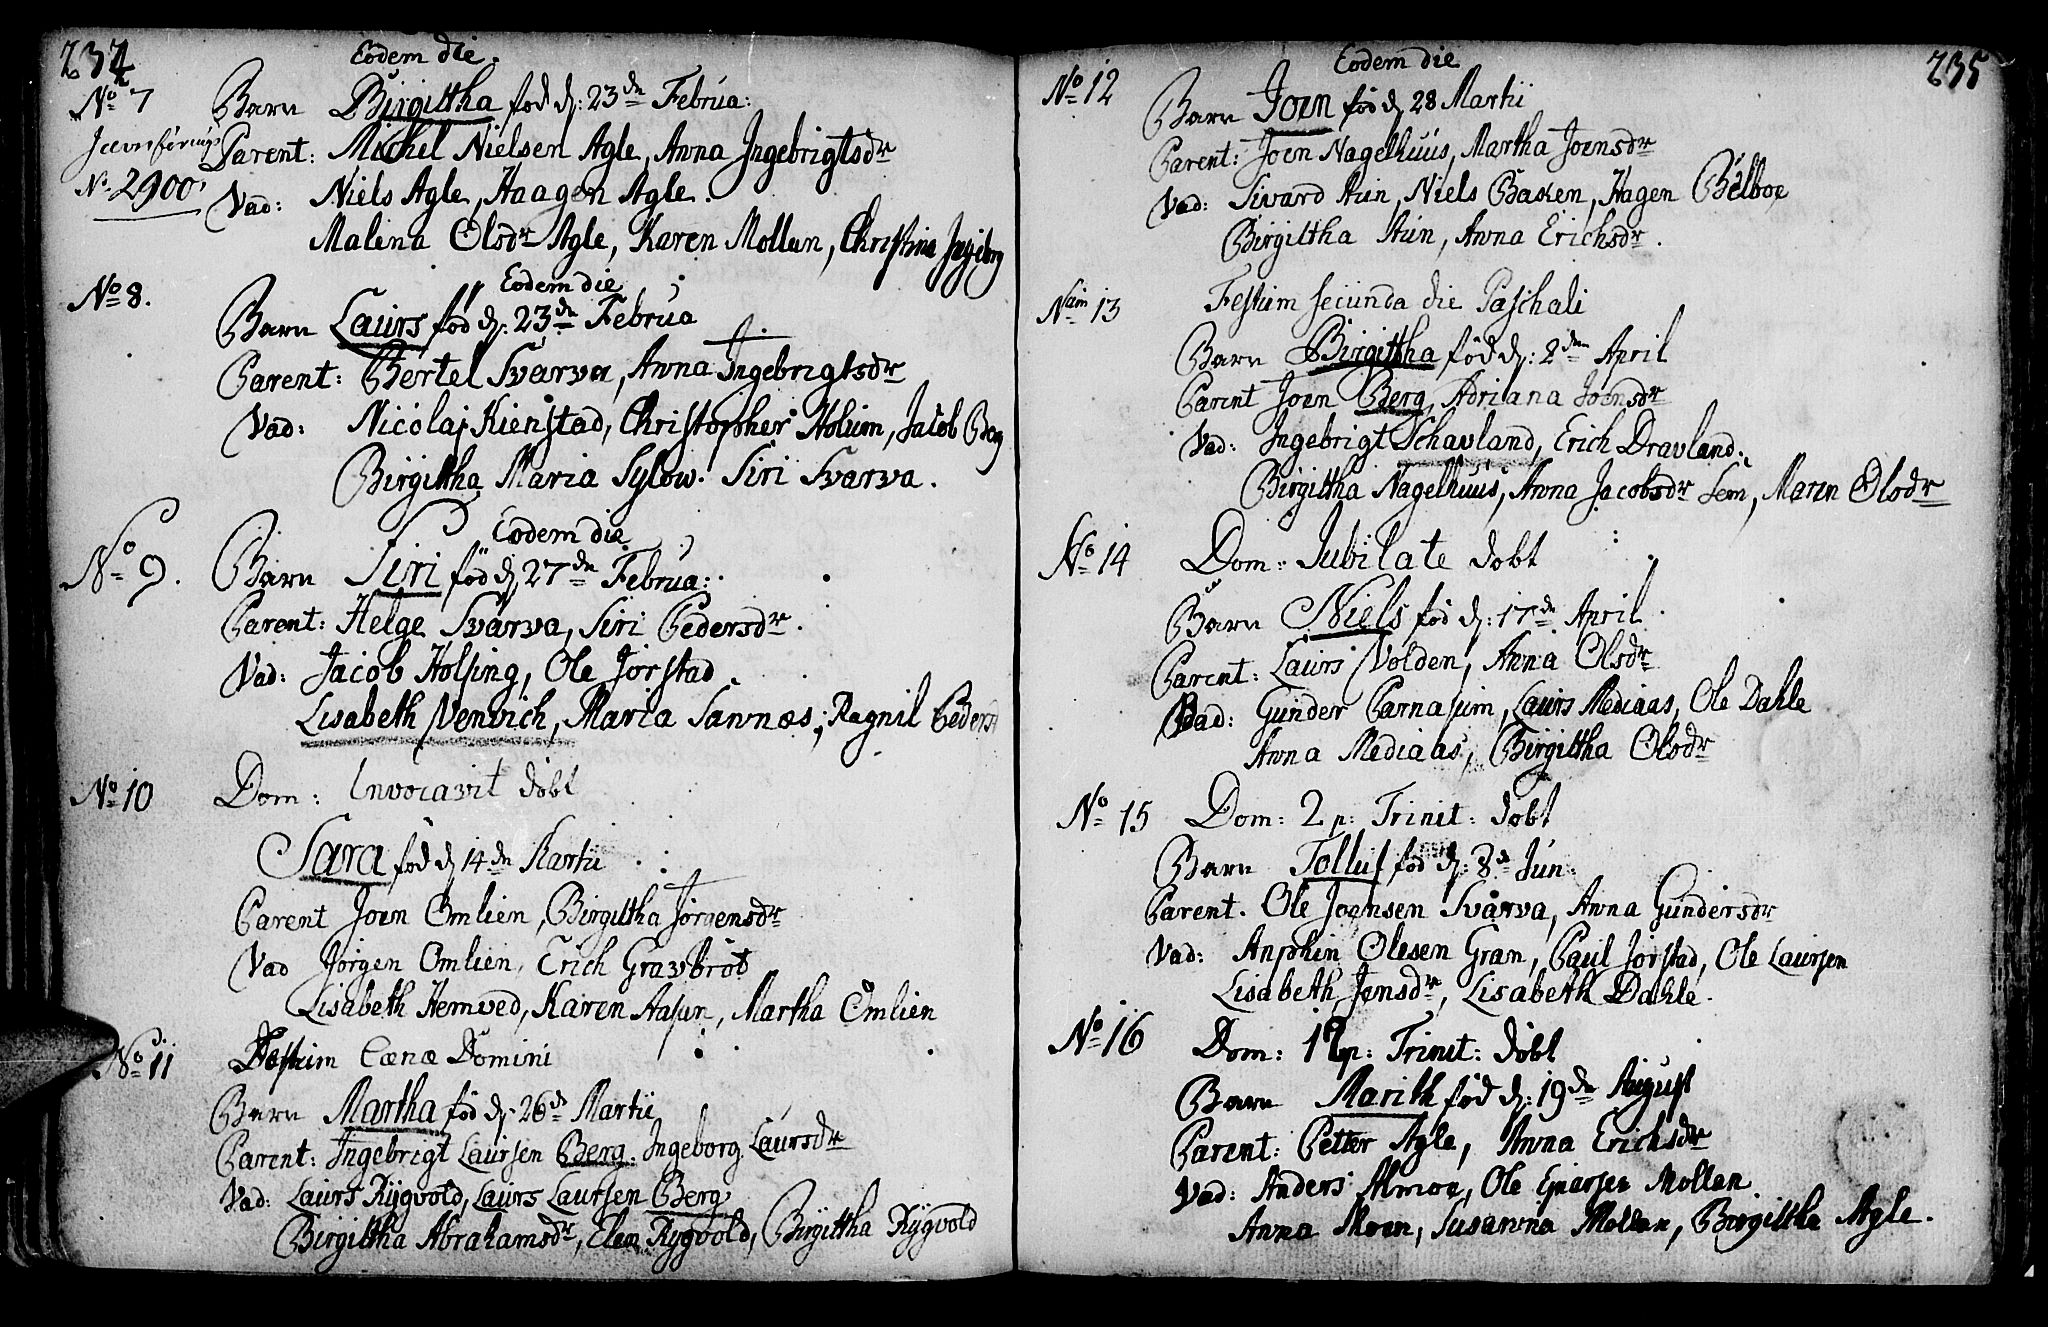 234
Eodem die.
No 7
Barn Birgittha fød d: 23de Februa:
Jævnførings
No 2900
Parent: Michel Nielsen Agle, Anna Ingebrigtsdr
Vad: Niels Agle, Haagen Agle.
Malena Olsdr Agle, Karen Mollan, Christina
No 8.
Eodem die
Barn Laurs fød d: 23de Februa
Parent: Bertel Svarva, Anna Ingebrigtsdr
Vad: Nicolaj Kienstad, Christopher Holum, Jacob
Birgittha Maria Sylow. Siri Svarva.
No 9.
Eodem die
Barn Siri fød d 27de Februa:
Parent: Helge Svarva, Siri Pedersdr.
Vad: Jacob Holsing, Ole Jorstad
Lisabeth Nenvich, Maria Sannæs, Ragnil Peders
No 10
Dom: Invocavit døbt
Sara fød d 14de Martii
Parent Joen Omlien, Birgittha Jørgensdr
Vad Jørgen Omlien, Erich Gravbrøt
Lisabeth Hemved, Karen Aasum, Martha Omlien
No 11
Festum Cænæ Domini
Barn Martha fød d: 26de Martii
Parent: Ingebrigt Laursen Berg. Ingeborg Laursdr
Vad: Laurs Rygvold, Laurs Laursen Berg
Birgittha Abrahamsdr, Elen Rygvold, Birgittha Rygvold
235
Eodem die
No 12
Barn Joen fød d 28 Martii
Parent: Joen Nagelhuus, Martha Joensdr
Vad: Sivard Aun, Niels Basken, Hagen Belboe
Birgittha Aun, Anna Erichsdr.
Num 13
Festum secunda die Paschali
Barn Birgittha fød d: 2den April
Parent Joen Berg, Adriana Joensdr
Vad: Ingebrigt Schavland, Erich Dravland.
Birgittha Nagelhuus, Anna Jacobsdr Sem, Maren Olsdr
No 14
Dom: Jubilate døbt
Barn Niels fød d: 17de April
Parent: Laurs Volden, Anna Olsdr
Vad: Gunder Parnasum, Laurs Mediaas, Ole Dahle
Anna Mediaas, Birgittha Olsdr
No 15
Dom: 2 p: Trinit: døbt
Barn Tolluf fød d: 8de Jun:
Parent. Ole Joensen Svarva, Anna Gundersdr
Vad: Anphin Olesen Gran, Paul Jorstad, Ole Laursen
Lisabeth Jensdr, Lisabeth Dahle.
No 16
Dom: 12 p: Trinit: døbt
Barn Marith fød d: 19de August
Parent: Petter Agle, Anna Erichsdr
Vad: Anders Almoe, Ole Mollan
Anna Moen, Susanna Mollan, Birgittha Agle.